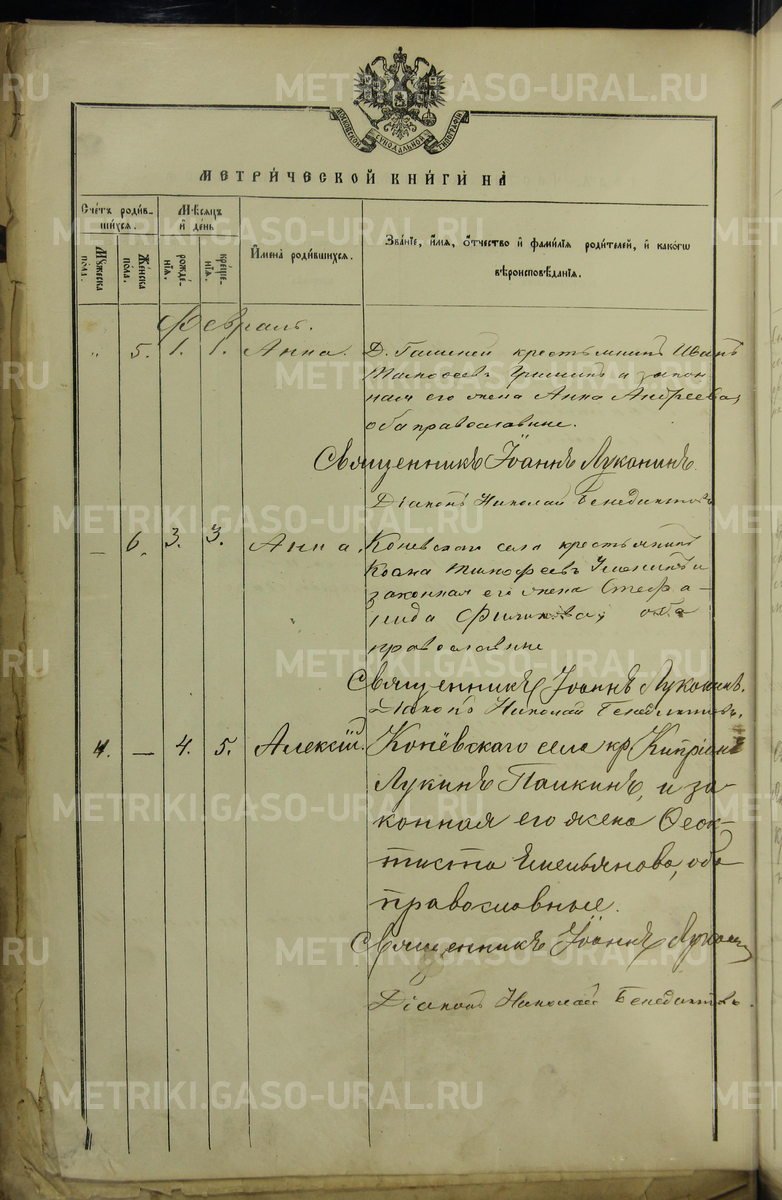 METRIKI.GASO-URAL.RU
МОСКОВСКОЙ СѴНОДАЛЬНОЙ ТИПОГРАФІИ
МЕТРИ́ЧЕСКОЙ КНИ́ГИ НА̀
Сче́тъ роди́в-
шихся.
Мѣсяцъ
и҆ де́нь
Му́жеска
по́ла.
Же́нска
по́ла.
рожде́-
нїѧ.
креще́-
нїѧ.
И҆мена̀ роди́вшихся.
Зва́нїе, и҆́мя, ѻ҆́тчество и҆ фами́лїя роди́телей, и҆ како́гѡ
вѣроисповѣ́данїя.
Февраль.
" 5. 1. 1. Анна. Д. крестьянинъ Иванъ
и закон
ная его жена Анна Андреева,
оба православные.
Священникъ Іоаннъ Луканинъ.
Діаконъ Николай Бенедиктовъ
— 6. 3. 3. Анна. Коневскаго села крестьянинъ
Тимофеевъ и
законная его жена Стефа-
нида оба
православные
Священникъ Іоаннъ Луканинъ.
Діаконъ Николай Бенедиктовъ.
4. — 4. 5. Алексій. Конёвскаго села кр. Кипріанъ
Лукинъ Пашкинъ, и за-
конная его жена Ѳеок-
тиста Емельянова, оба
православные.
Священникъ Іоаннъ Луканинъ
Діаконъ Николай Бенедиктовъ.